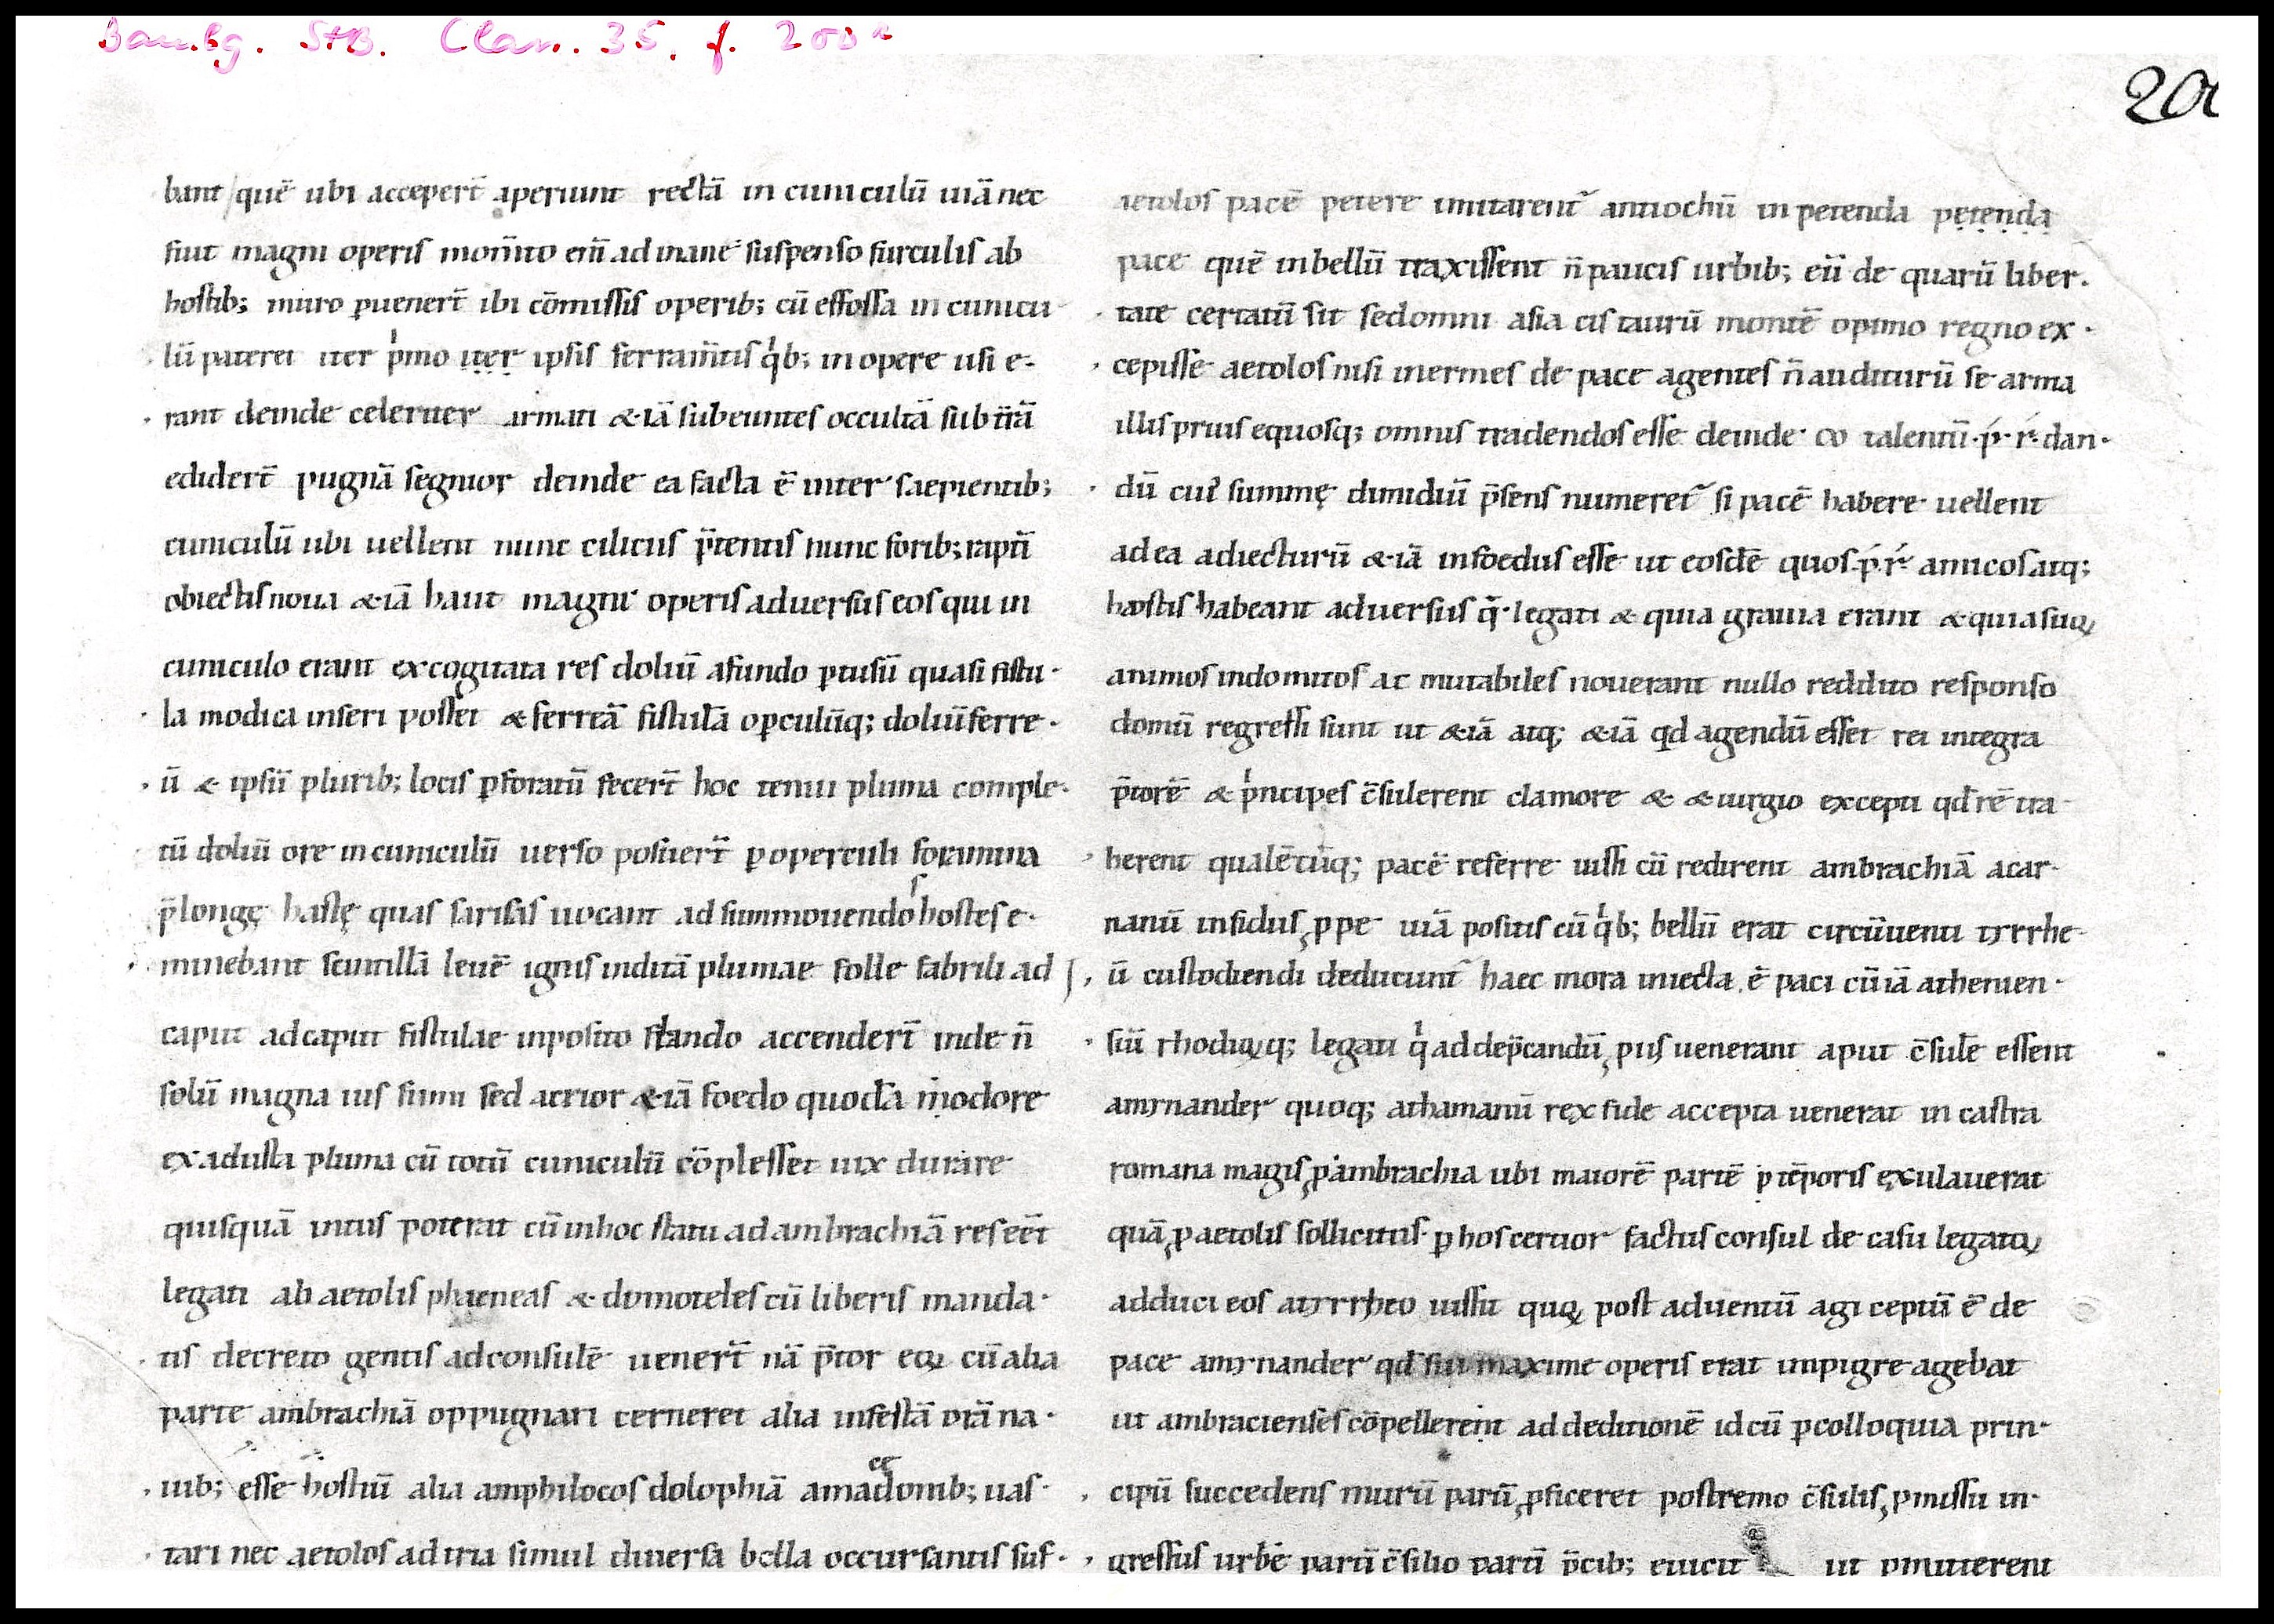 Bambg. StB. Class. 35, f. 200r
200
bant / quē ubi acceper̄t aperiunt rectā in cuniculū uiā nec
fiut magni operis mom̄to eni̅ ad inane suspenso furculis ab
hostib; muro ꝑuener̄t ibi cōmissis operib; cū effossa in cunicu-
lū pateret iter pͥmo iter ipsis ferram̄tis qͥb; in opere usi e-
rant deinde celeriter armati &iā subeuntes occultā sub t̄rā
edider̄t pugnā segnior deinde ea facta ē inter saepientib;
cuniculū ubi uellent nunc cilicus p̄tentis nunc forib; raptī
obiectis noua &iā haut magni operis aduersus eos qui in
cuniculo erant excogitata res doliū afundo ꝑtusū quasi fistu-
la modica inseri posset & ferreā fistulā oꝑculūq; doliū ferre-
ū & ipsū plurib; locis ꝑforatū fecer̄t hoc tenui pluma comple-
tū doliū ore in cuniculū uerso posuer̄t ꝑ operculi foramina
p̄longę hastę quas sarisas uocant ad summouendoˢ hostes e-
minebant scintillā leuē ignis inditā plumae folle fabrili ad
caput ad caput fistulae inposito flando accender̄t inde n̄
solū magna uis fumi sed acrior &iā foedo quodā inodore
ex adusta pluma cū totū cuniculū cōplesset uix durare
quisquā intus poterat cū in hoc statu ad ambrachiā res eēt
legati ab aetolis phaeneas & domoteles cū liberis manda-
tis decreto gentis ad consulē uener̄t nā p̄tor eoꝝ cū alia
parte ambrachiā oppugnari cerneret alia infestā orā na-
uib; esse hostiū alia amphilocos dolophiā amaᶜᵉdonib; uas-
tari nec aetolos ad tria simul diuersa bella occursantis suf-
aetolos pacē petere imitarent᷑ antiochū in petenda petenda
pace quē in bellū traxissent n̄ paucis urbib; eū de quarū liber-
tate certatū sit sed omni asia cis taurū montē opimo regno ex-
cepisse aetolos nisi inermes de pace agentes n̄ auditurū se arma
illis prius equosq; omnis tradendos esse deinde ꝏ talentū ·p·r· dan-
dū cui' summę dimidiū p̄sens numeret᷑ si pacē habere uellent
ad ea adiecturū &iā in foedus esse ut eosdē quos ·p·r· amicos atq;
hostis habeant aduersus q̄ legati & quia grauia erant & quia suoꝝ
animos indomitos ac mutabiles nouerant nullo reddito responso
domū regressi sunt ut &iā atq; &iā qd agendū esset rei integra
p̄torē & pͥncipes c̄sulerent clamore & & iurgio excepti qđ rē tra-
herent qualēcūq; pacē referre iussi cū redirent ambrachiā acar-
nanū insidiis ꝓpe uiā positis cū qͥb; bellū erat circūuenti tyrrhe-
ū custodiendi deducunt᷑ haec mora iniecta ē paci cū iā athenien-
siū rhodioꝝq; legati qͥ ad dep̄candū ꝓ iis uenerant aput c̄sulē essent
amynander quoq; athamanū rex fide accepta uenerat in castra
romana magis ꝓ ambrachia ubi maiorē partē ꝑ tēporis exulauerat
quā ꝓ aetolis sollicitus ꝑ hos certior factus consul de casu legatoꝝ
adduci eos atyrrheo iussit quoꝝ post aduentū agi ceptū ē de
pace amynander qđ sui maxime operis erat impigre agebat
ut ambracienses cōpellerent ad deditionē id cū ꝑ colloquia prin-
cipū succedens murū parū ꝓficeret postremo c̄sulis ꝑmissu in-
gressus urbē partī c̄silio partī p̄cib; euicit ut ꝑmitterent